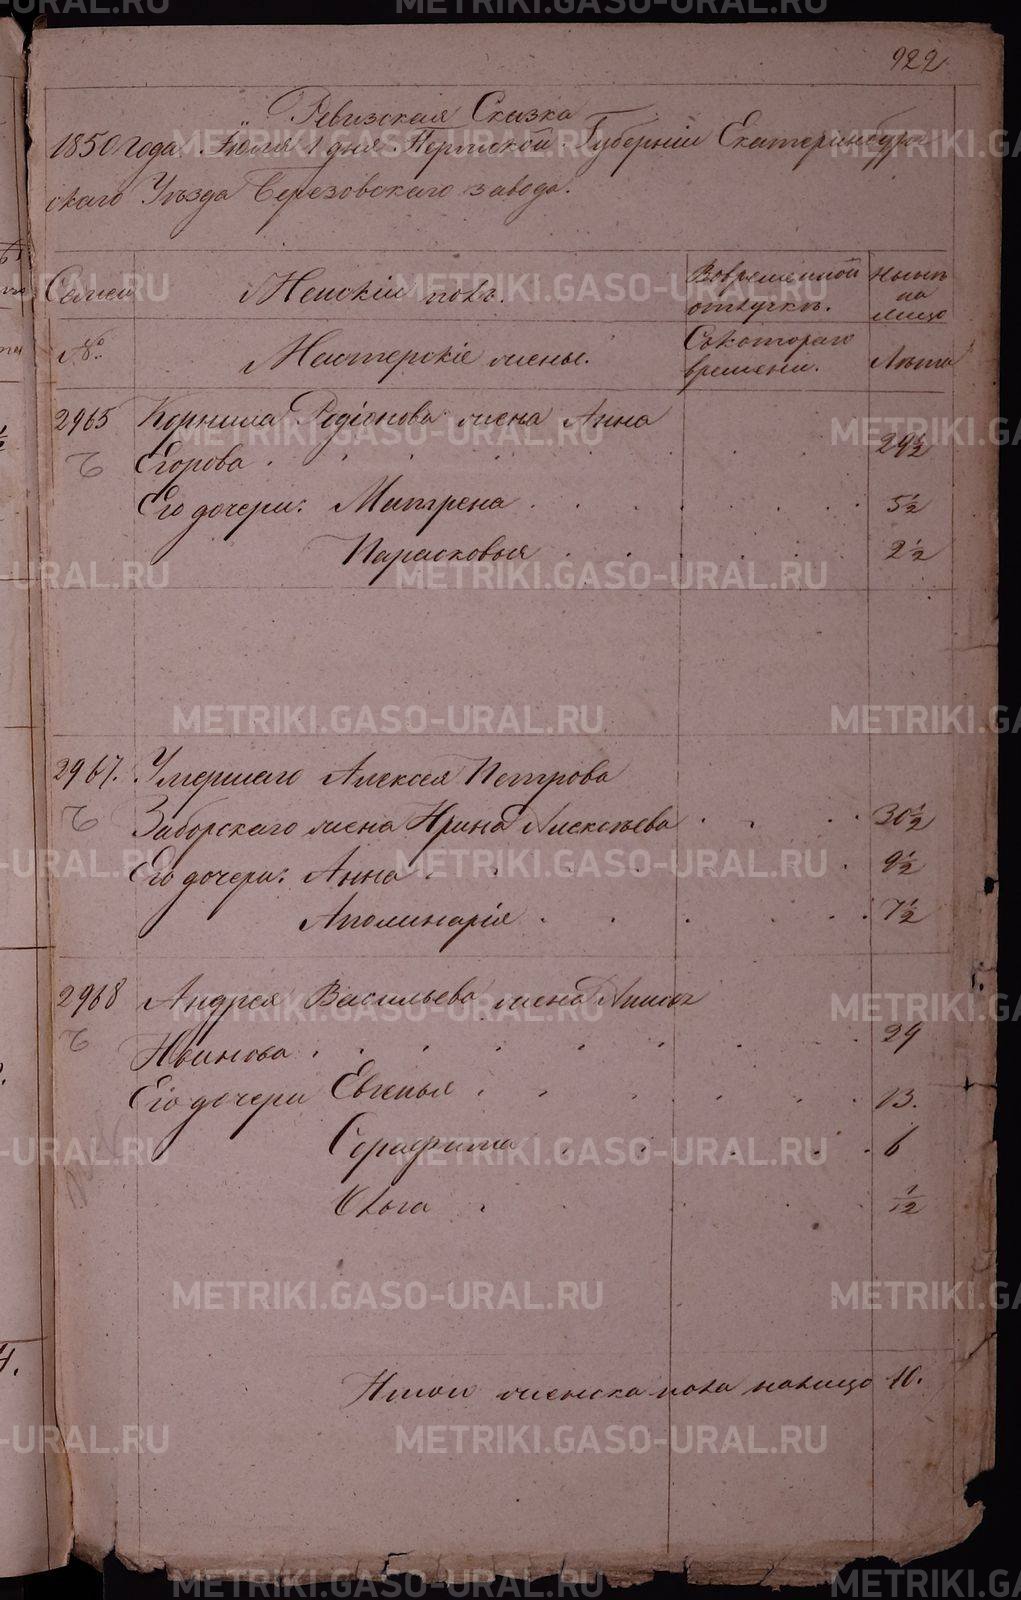 922
Ревизская Сказка
1850 года Іюля 1 дня Пермской Губерніи Екатеринбург
скаго Уѣзда Березовскаго завода.
Семей Женскій полъ. Вовременной отлучкѣ. Нынѣ на лицо
№ Мастерскіе жены. Съкотораго времени. Лѣта
2965 Корнила Родіонова жена Анна
Егорова 24½
Его дочери: Матрена 5½
Парасковья 2½
2967. Умершаго Алексея Петрова
Заборскаго жена Ирина Алексѣева 30½
Его дочери: Анна 9½
Аполинарія 7½
2968 Андрея Васильева жена Анна
Иванова 29
Его дочери Евгенья 13.
Серафима 6
Ольга 1/12
Итого женска пола налицо 10.
METRIKI.GASO-URAL.RU